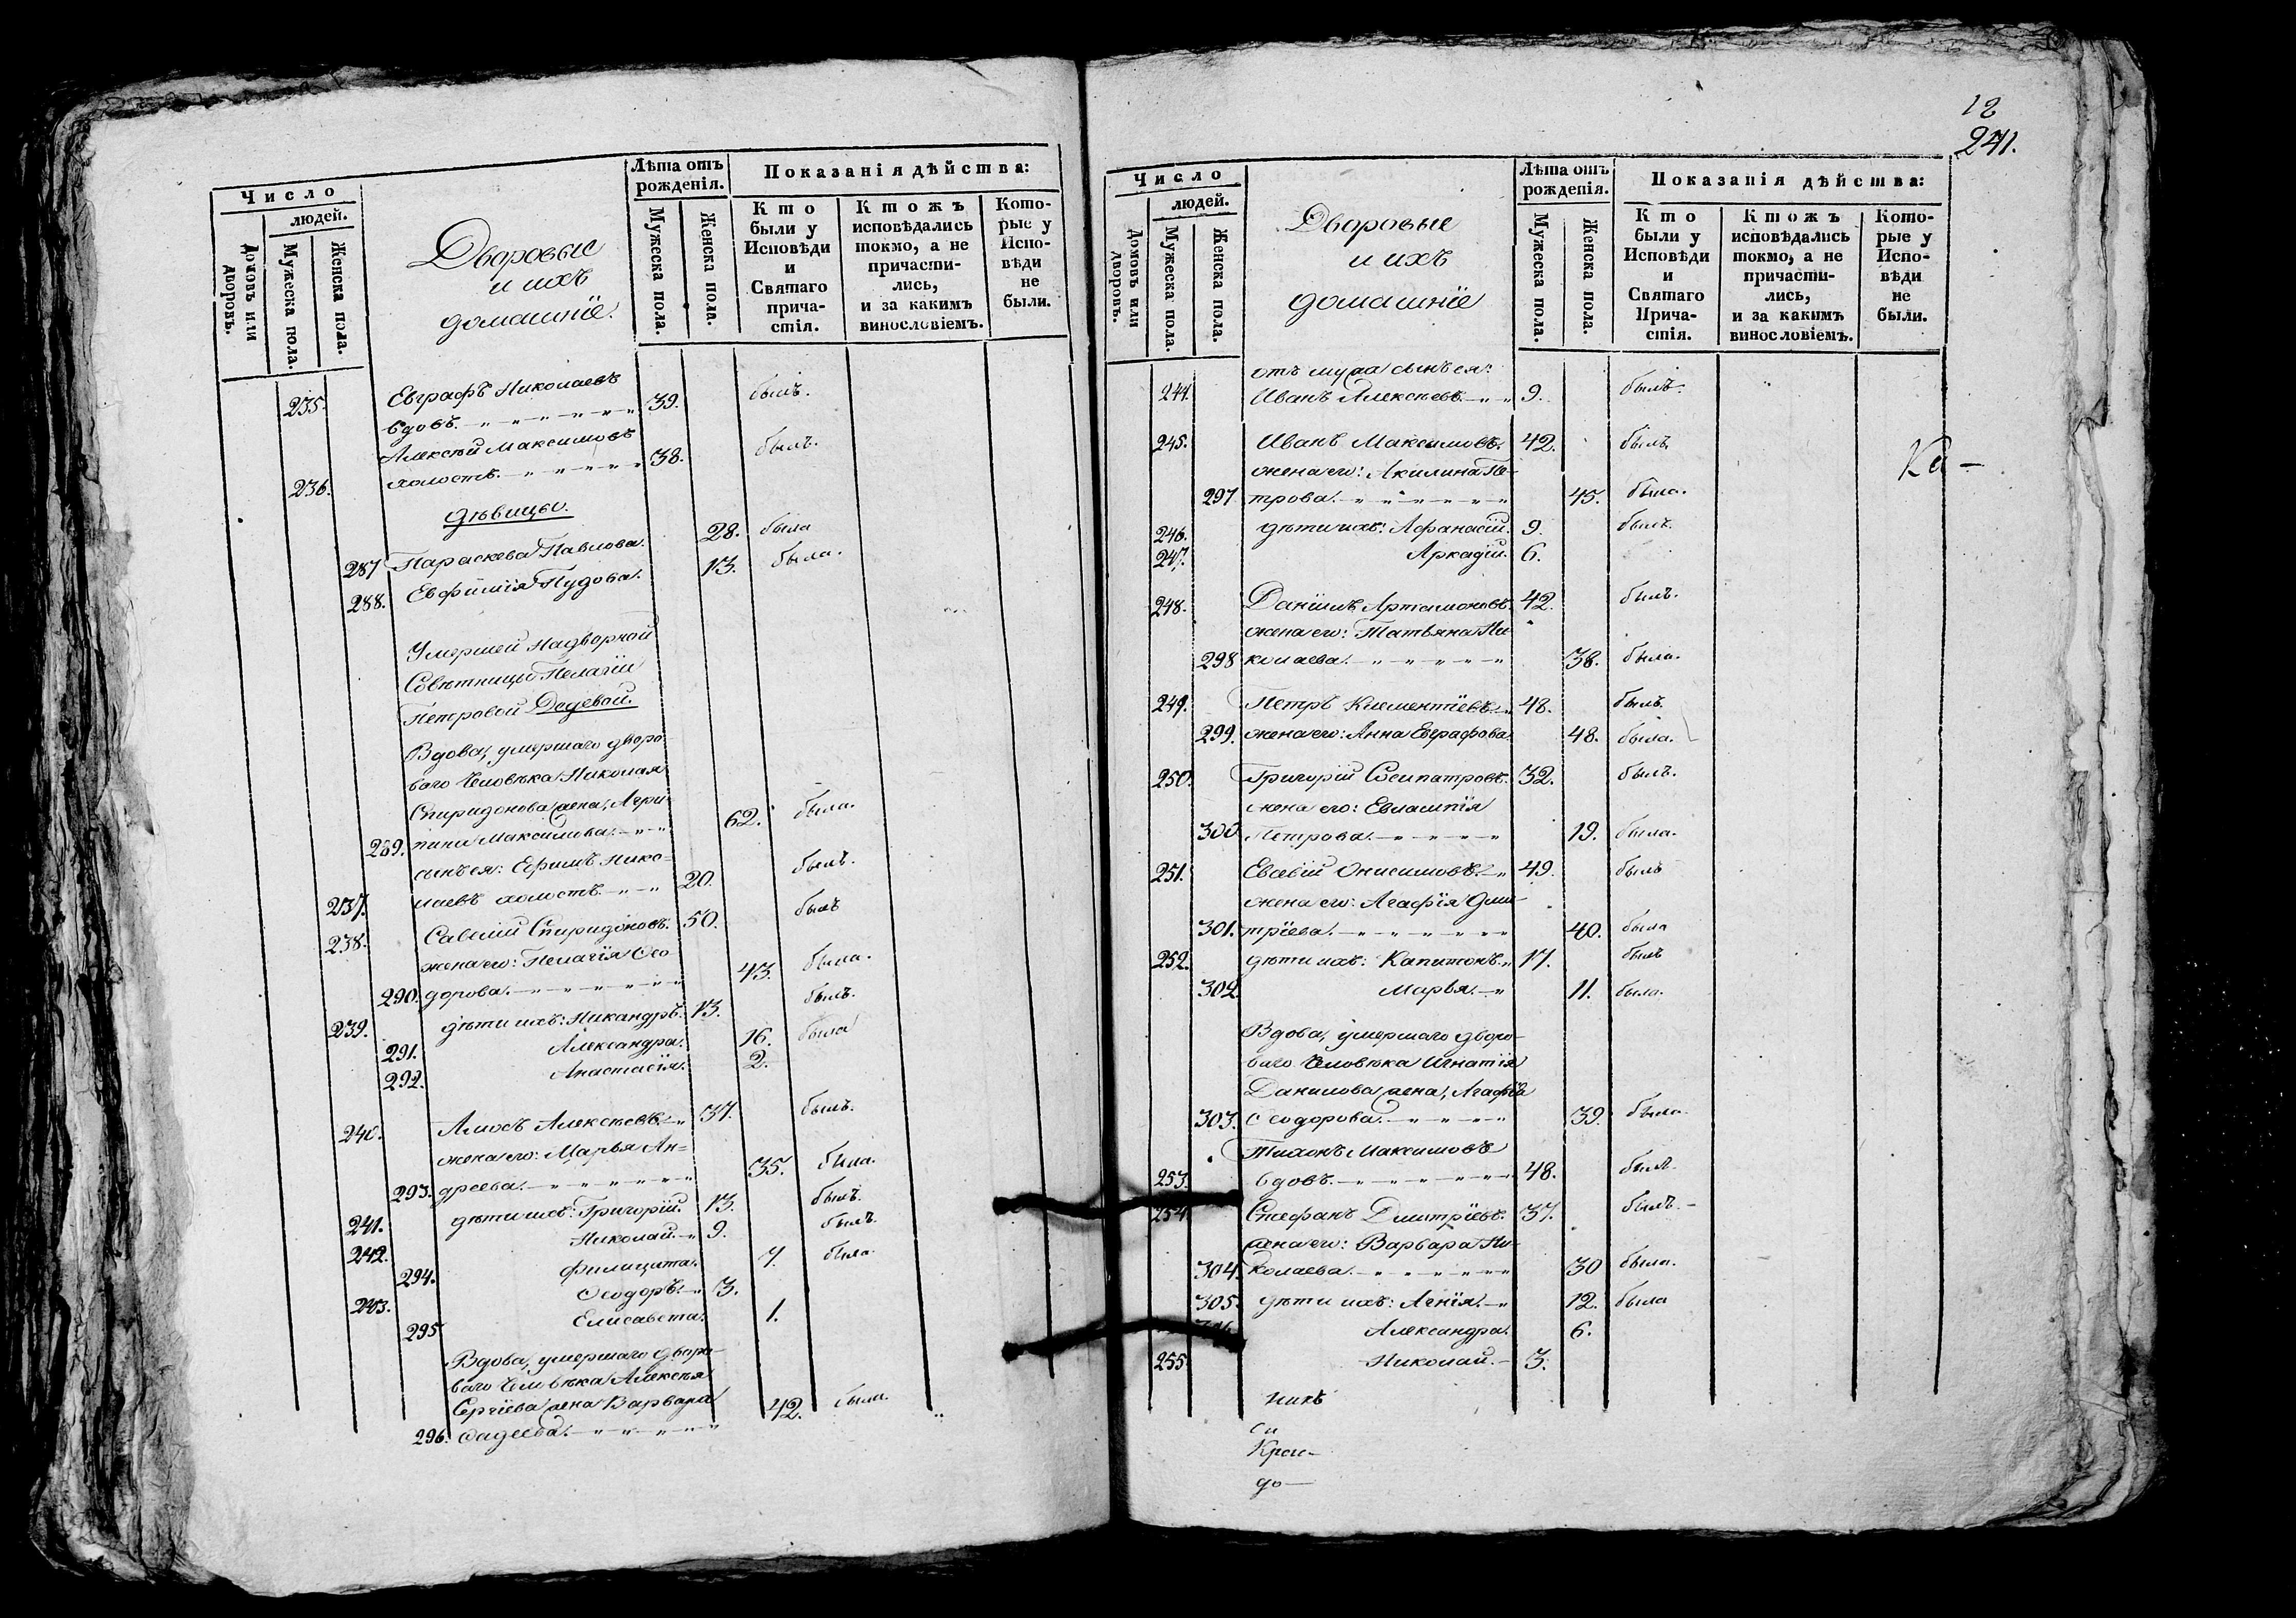 Число
людей.
Домовъ или дворовъ.
Мужеска пола.
Женска пола.
Дворовые
и ихъ
домашніе.
Лѣта отъ
рожденія.
Мужеска пола.
Женска пола.
Показанія дѣйства:
Кто
были у
Исповѣди
и
Святаго
прича-
стія.
Ктожъ
исповѣдались
токмо, а не
причасти-
лись,
и за какимъ
винословіемъ.
Кото-
рые у
Испо-
вѣди
не
были.
235. Евграфъ Николаевъ
вдовъ. 39. былъ.
Алексѣй Максимовъ
236. холостъ. 38. былъ.
дѣвицы.
287 Параскева Павлова. 28. была
288. Евфимія Пудова. 13. была.
Умершей Надворной
Совѣтницы Пелагіи
Петровой Дедевой.
Вдова, умершаго дворо-
ваго человѣка Николая
Спиридонова жена, Агри-
289. пина Максимова. 62. была.
сынъ ея: Ефимъ Нико-
237. лаевъ холостъ. 20. былъ.
238. Савелій Спиридоновъ. 50. былъ
жена его: Пелагія Ѳео-
290. дорова. 43. была.
239. дѣти ихъ: Никандръ. 13. былъ.
291. Александра. 16. была
292. Анастасія. 2.
240. Амосъ Алексѣевъ. 37. былъ.
жена его: Марья Ан-
293. дреева. 35. была.
241. дѣти ихъ: Григорій. 13. былъ.
242. Николай. 9. былъ.
294. Филицата. 7. была.
243. Ѳеодоръ. 3.
295 Елисавета. 1.
Вдова, умершаго дворо-
ваго человѣка Алексѣя
Сергіева жена Варвара
296. Ѳадеева. 42. была.
12
241.
Число
людей.
Домовъ или дворовъ.
Мужеска пола.
Женска пола.
Дворовые
и ихъ
домашніе
Лѣта отъ
рожденія.
Мужеска пола.
Женска пола.
Показанія дѣйства:
Кто
были у
Исповѣди
и
Святаго
Прича-
стія.
Ктожъ
исповѣдались
токмо, а не
причасти-
лись,
и за какимъ
винословіемъ.
Кото-
рые у
Испо-
вѣди
не
были.
отъ мужа сынъ ея:
244. Иванъ Алексѣевъ. 9. былъ.
245. Иванъ Максимовъ. 42. былъ
Ка-
жена его: Акилина Пе-
297 трова. 45. была.
246. дѣти ихъ: Афанасій. 9. былъ.
247. Аркадій. 6.
248. Даніилъ Артамоновъ. 42. былъ.
жена его: Татьяна Ни-
298 колаева. 38. была.
249. Петръ Климентіевъ. 48. былъ.
299. жена его: Анна Евграфова 48. была.
250. Григорій Сосипатровъ. 32. былъ.
жена его: Евлампія
300. Петрова. 19. была.
251. Евсевій Онисимовъ. 49. былъ
жена его: Агафія Дми-
301. тріева. 40. была
252. дѣти ихъ: Капитонъ. 17. былъ
302. Марья. 11. была.
Вдова, умершаго дворо-
ваго человѣка Игнатія
Данилова жена, Агафія
303. Ѳеодорова. 39. была.
Тихонъ Максимовъ
253. вдовъ. 48. былъ.
254 Стефанъ Дмитріевъ. 37. былъ.
жена его: Варвара Ни-
304. колаева. 30 была.
305. дѣти ихъ: Агнія. 12. была
Александра. 6.
255. Николай. 3.
никъ
си
Крои-
до-